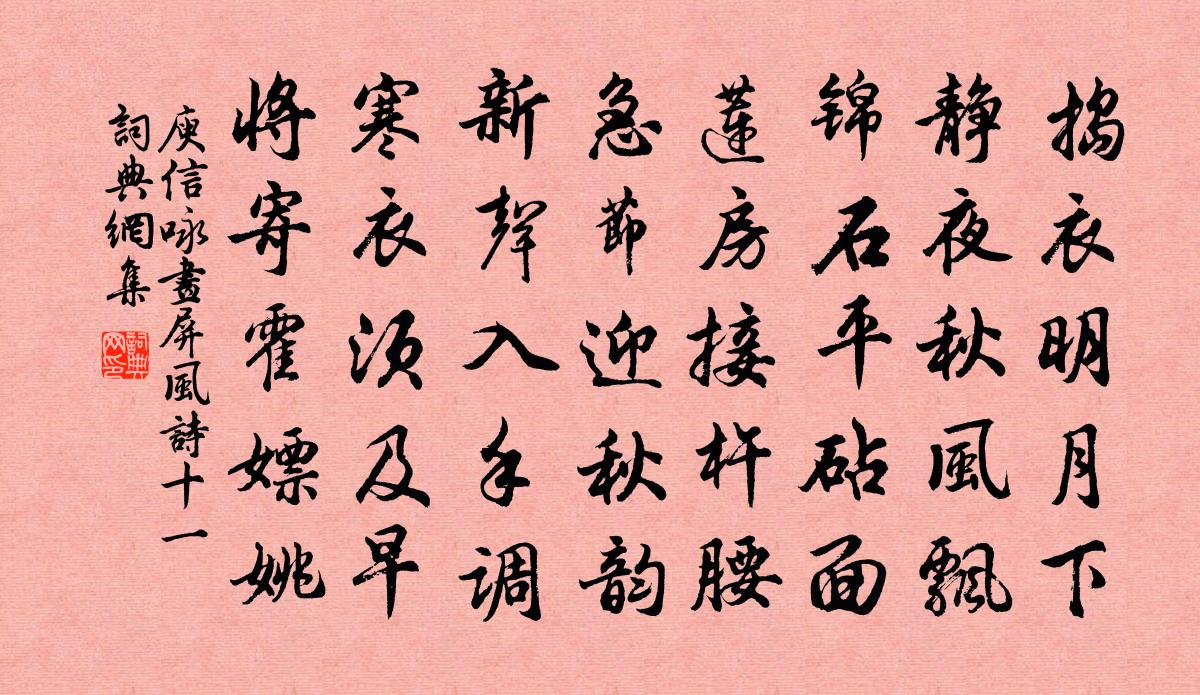 搗衣明月下
静夜秋風飄
锦石平砧面
蓮房接杵腰
急節迎秋韵
新聲入手調
寒衣須及早
将寄霍嫖姚
庾信咏畫屏風詩十一
詞典網集
詞典网印